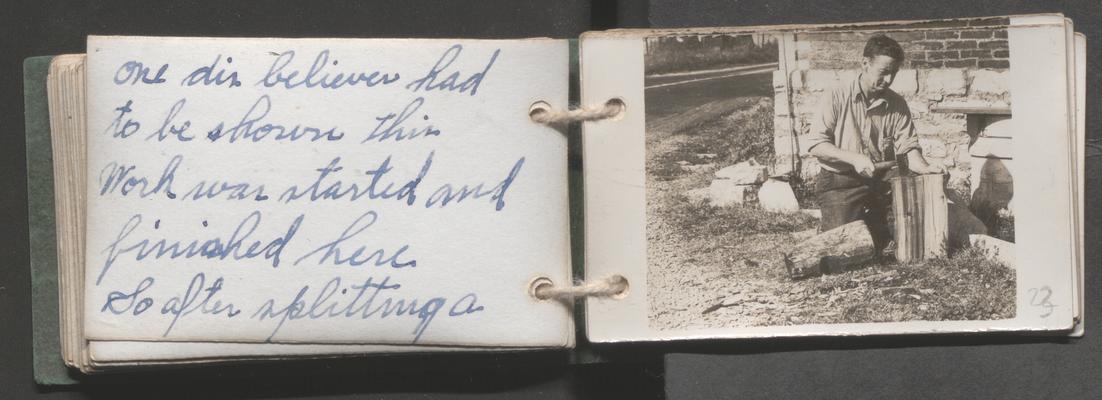 one dis believer had
to be shown this
Work was started and
finished here.
So after splitting a
23